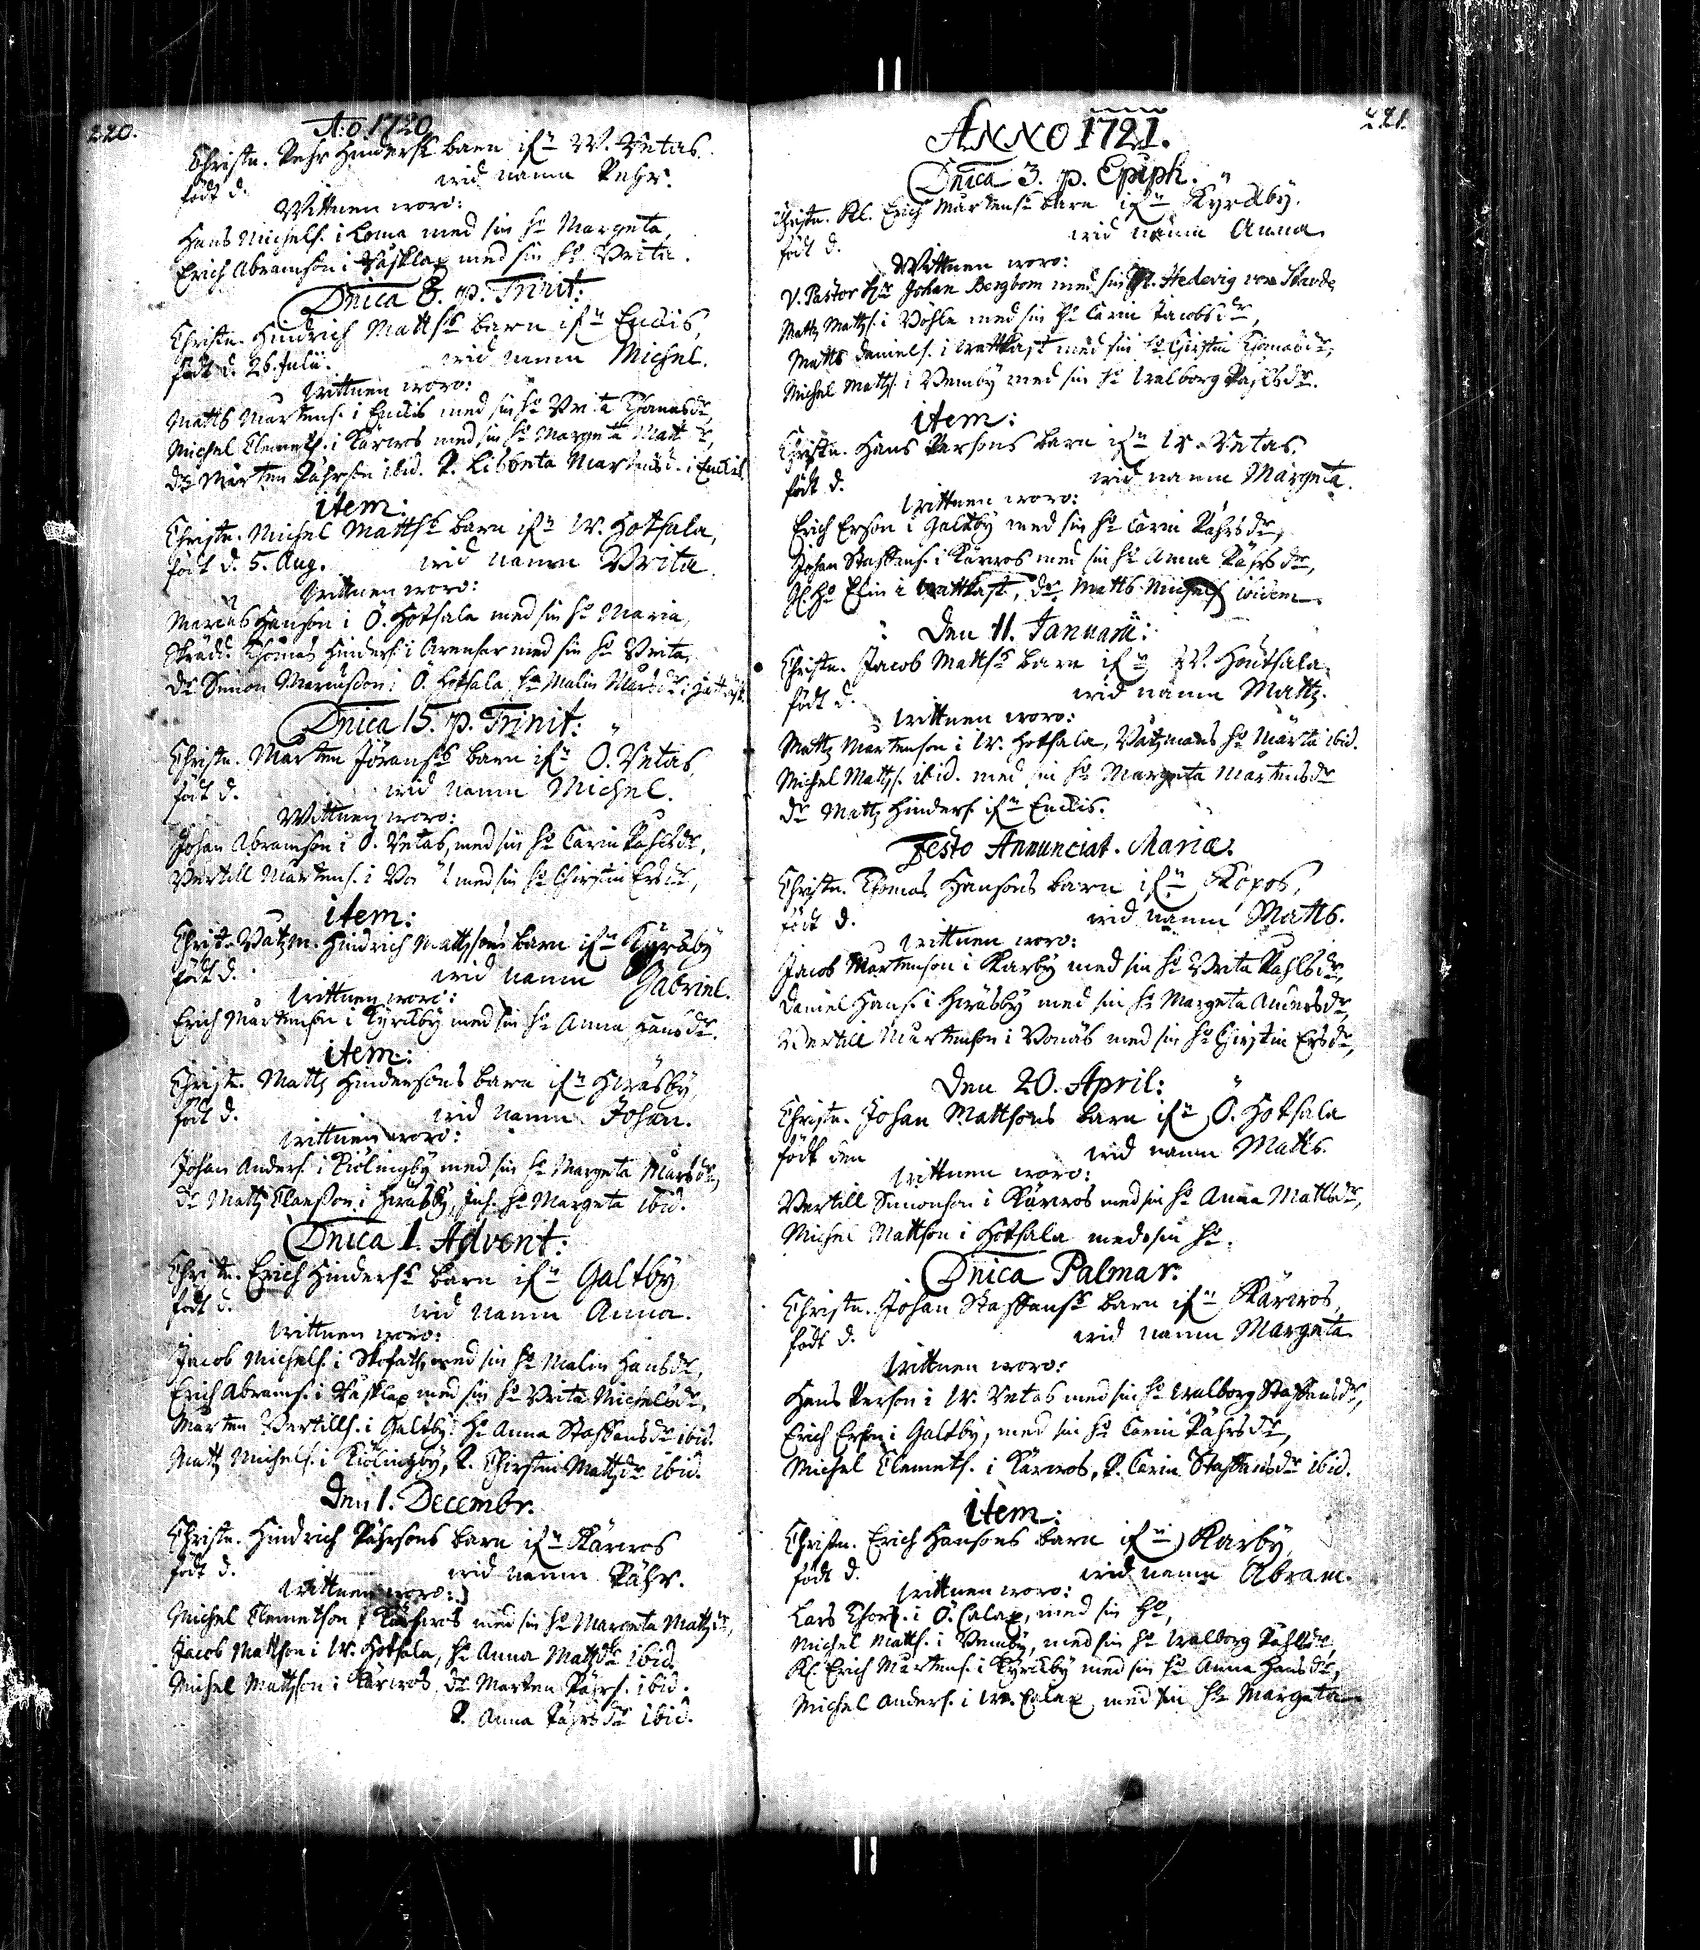 220.
A:o 1720
Christn. Pehr Hinderss barn ifrn W. Retas.
född d. wid namn Pehr.
Wittnen woro:
Hans Michels. i Roma med sin ho Margeta,
Erich Abramson i Wäsklax med sin ho Brita.
Dnica 8. p. Trinit:
Christn. Hindrich Mattss barn ifrn Enklis,
född d. 26. Julii. wid namn Michel.
Wittnen woro:
Matts Martens. i Enklis med sin ho Brita Thomasdr,
Michel Clemets. i Kärwos med sin ho Margeta Matt
Dr Mårten Påhrson ibid. P. Lisbeta Martensd. i Enklis
item:
Christn. Michel Mattss barn ifrn W. Hotsala,
född d. 5. Aug. wid namn Brita
Wittnen woro:
Marcus Hanson i Ö. Hotsala med sin ho Maria,
Skrädd. Thomas Hinders. i Arensar med sin ho Brita,
Dr Simon Marcusson i Ö. Hotsala, Malin
Dnica 15. p. Trinit:
Christn. Mårten Jöranss barn ifrn Ö. Retas,
född d. wid namn Michel.
Wittnen woro:
Johan Abramson i Ö. Retas, med sin ho Carin Påhlsdr,
Bertill Mårtens. i med sin ho Chirstin Ersdr,
item:
Christn. Watzm. Hindrich Matzsons barn ifrn Kyrkby
född d. wid namn Gabriel.
Wittnen woro:
Erich Mårtenson i Kyrkby med sin ho Anna Hansdr.
item:
Christn. Mattz Hindersons barn ifrn Hwäsby,
född d. wid namn Johan.
Wittnen woro:
Johan Anders. i Kiölingby med sin ho Margeta Mårsdr,
Dr Mattz Clemetson i Hwäsby, Joh. ho Margeta ibid.
Dnica 1. Advent:
Christn. Erich Hinderss barn ifrn Galtby
född d. wid namn Anna.
Wittnen woro:
Jacob Michels. i med sin ho Malin Hansdr,
Erich Abrams. i Wäsklax med sin ho Brita Michelsdr,
Mårten Bertills. i Galtby: ho Anna Staffansdr ibid.
Mattz Michels. i Kiölingby, P. Chirstin Mattzdr ibid.
Den 1. Decembr.
Christn. Hindrich Påhrsons barn ifrn Kärwos
född d. wid namn Påhr.
Wittnen woro:
Michel Clemetson i Kärwos med sin ho Margeta Mattzdr,
Jacob Mattson i W. Hotsala, ho Anna Mattsdr ibid.
Michel Mattson i Kärwos, Dr Mårten Påhrs. ibid.
P. Anna Påhrsdr ibid.
221.
ANNO 1721.
Dnica 3. p. Epiph.
Christn. Kl. Erich Mårtenss barn ifrn Kyrkby.
född d. wid namn Anna.
Wittnen woro:
V. Pastor Hr Johan Bergbom med sin Hedevig
Mattz Mattzs. i Böhle med sin ho Carin Jacobsdr,
Matts Daniels. i Wattkast med sin ho Chirstin Thomasdr,
Michel Mattzs. i Bemby med sin ho Walborg Påhlsdr.
item:
Christn. Hans Persons barn ifrn W. Retas.
född d. wid namn Margeta.
Wittnen woro:
Erich Erson i Galtby med sin ho Carin Påhrsdr,
Johan Staffens. i Kärwos med sin ho Anna Påhlsdr,
ho Elin i Wattkast, Dr Matts Michels. ibidem.
Den 11. Januarii:
Christn. Jacob Mattss barn ifrn W. Houtsala.
född d. wid namn Mattz.
Wittnen woro:
Mattz Mårtenson i W. Hotsala, Watzmans ho Märta ibid.
Michel Mattzs. ibid. med sin ho Margeta Mårtensdr
Dr Mattz Hinders. ifrn Enklis.
Festo Annunciat. Mariæ.
Christn. Thomas Hansons barn ifrn Kopos,
född d. wid namn Matts.
Wittnen woro:
Jacob Mårtenson i Karby med sin ho Brita Påhlsdr,
Daniel Hans. i Hwäsby med sin ho Margeta Andersdr,
Bertill Mårtenson i Bonäs med sin ho Chirstin Ersdr,
Den 20. April:
Christn. Johan Mattsons barn ifrn Ö. Hotsala
född den wid namn Matts.
Wittnen woro:
Bertill Simonson i Kärwos med sin ho Anna Mattsdr,
Michel Mattson i Hotsala med sin ho.
Dnica Palmar:
Christn. Johan Staffanss barn ifrn Kärwos,
född d. wid namn Margeta
Wittnen woro:
Hans Person i W. Retas med sin ho Walborg Staffansdr,
Erich Erson i Galtby, med sin ho Carin Påhrsdr,
Michel Clemets. i Kärwos, P. Carin Staffansdr ibid.
item:
Christn. Erich Hansons barn ifrn Karby
född d. wid namn Abram.
Wittnen woro:
Lars Thors. i Ö. Salax, med sin ho,
Michel Matts. i Bemby, med sin ho Walborg Påhlsdr,
Kl. Erich Mårtens. i Kyrkby med sin ho Anna Hansdr,
Michel Anders. i W. Salax med sin ho Margeta